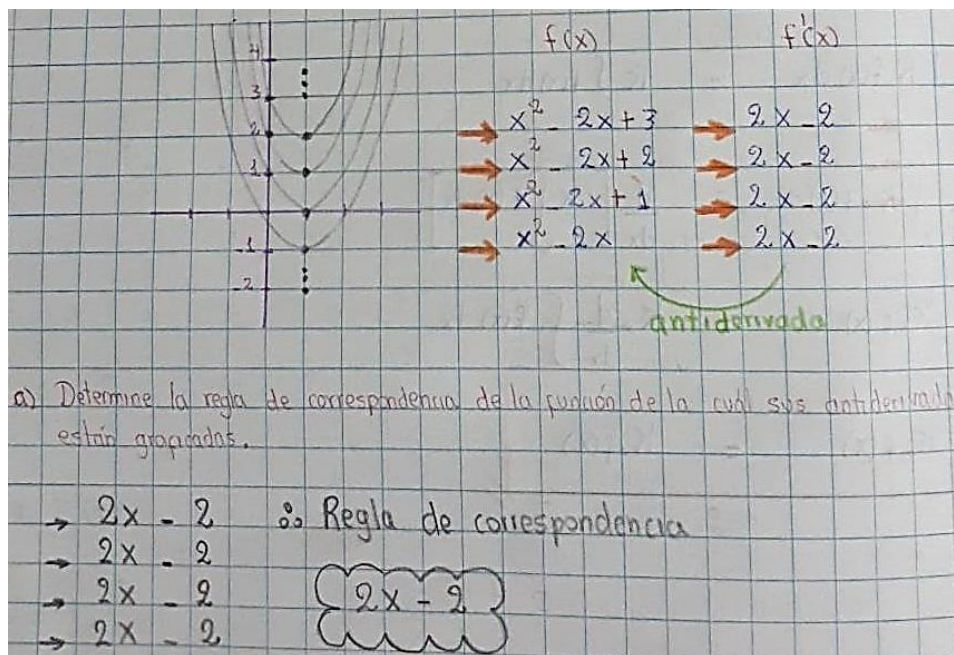 f(x) f'(x)
4
3
2
1
-1
-2
x² - 2x + 3 2x - 2
x² - 2x + 2 2x - 2
x² - 2x + 1 2x - 2
x² - 2x 2x - 2
antiderivada
a) Determine la regla de correspondencia de la función de la cual sus antiderivada
están graficadas.
→ 2x - 2 ∴ Regla de correspondencia
→ 2x - 2
→ 2x - 2 2x - 2
→ 2x - 2